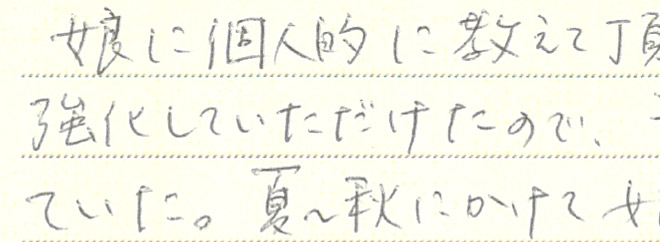 娘に個人的に教えて頂
強化していただけたので、
ていた。夏~秋にかけて